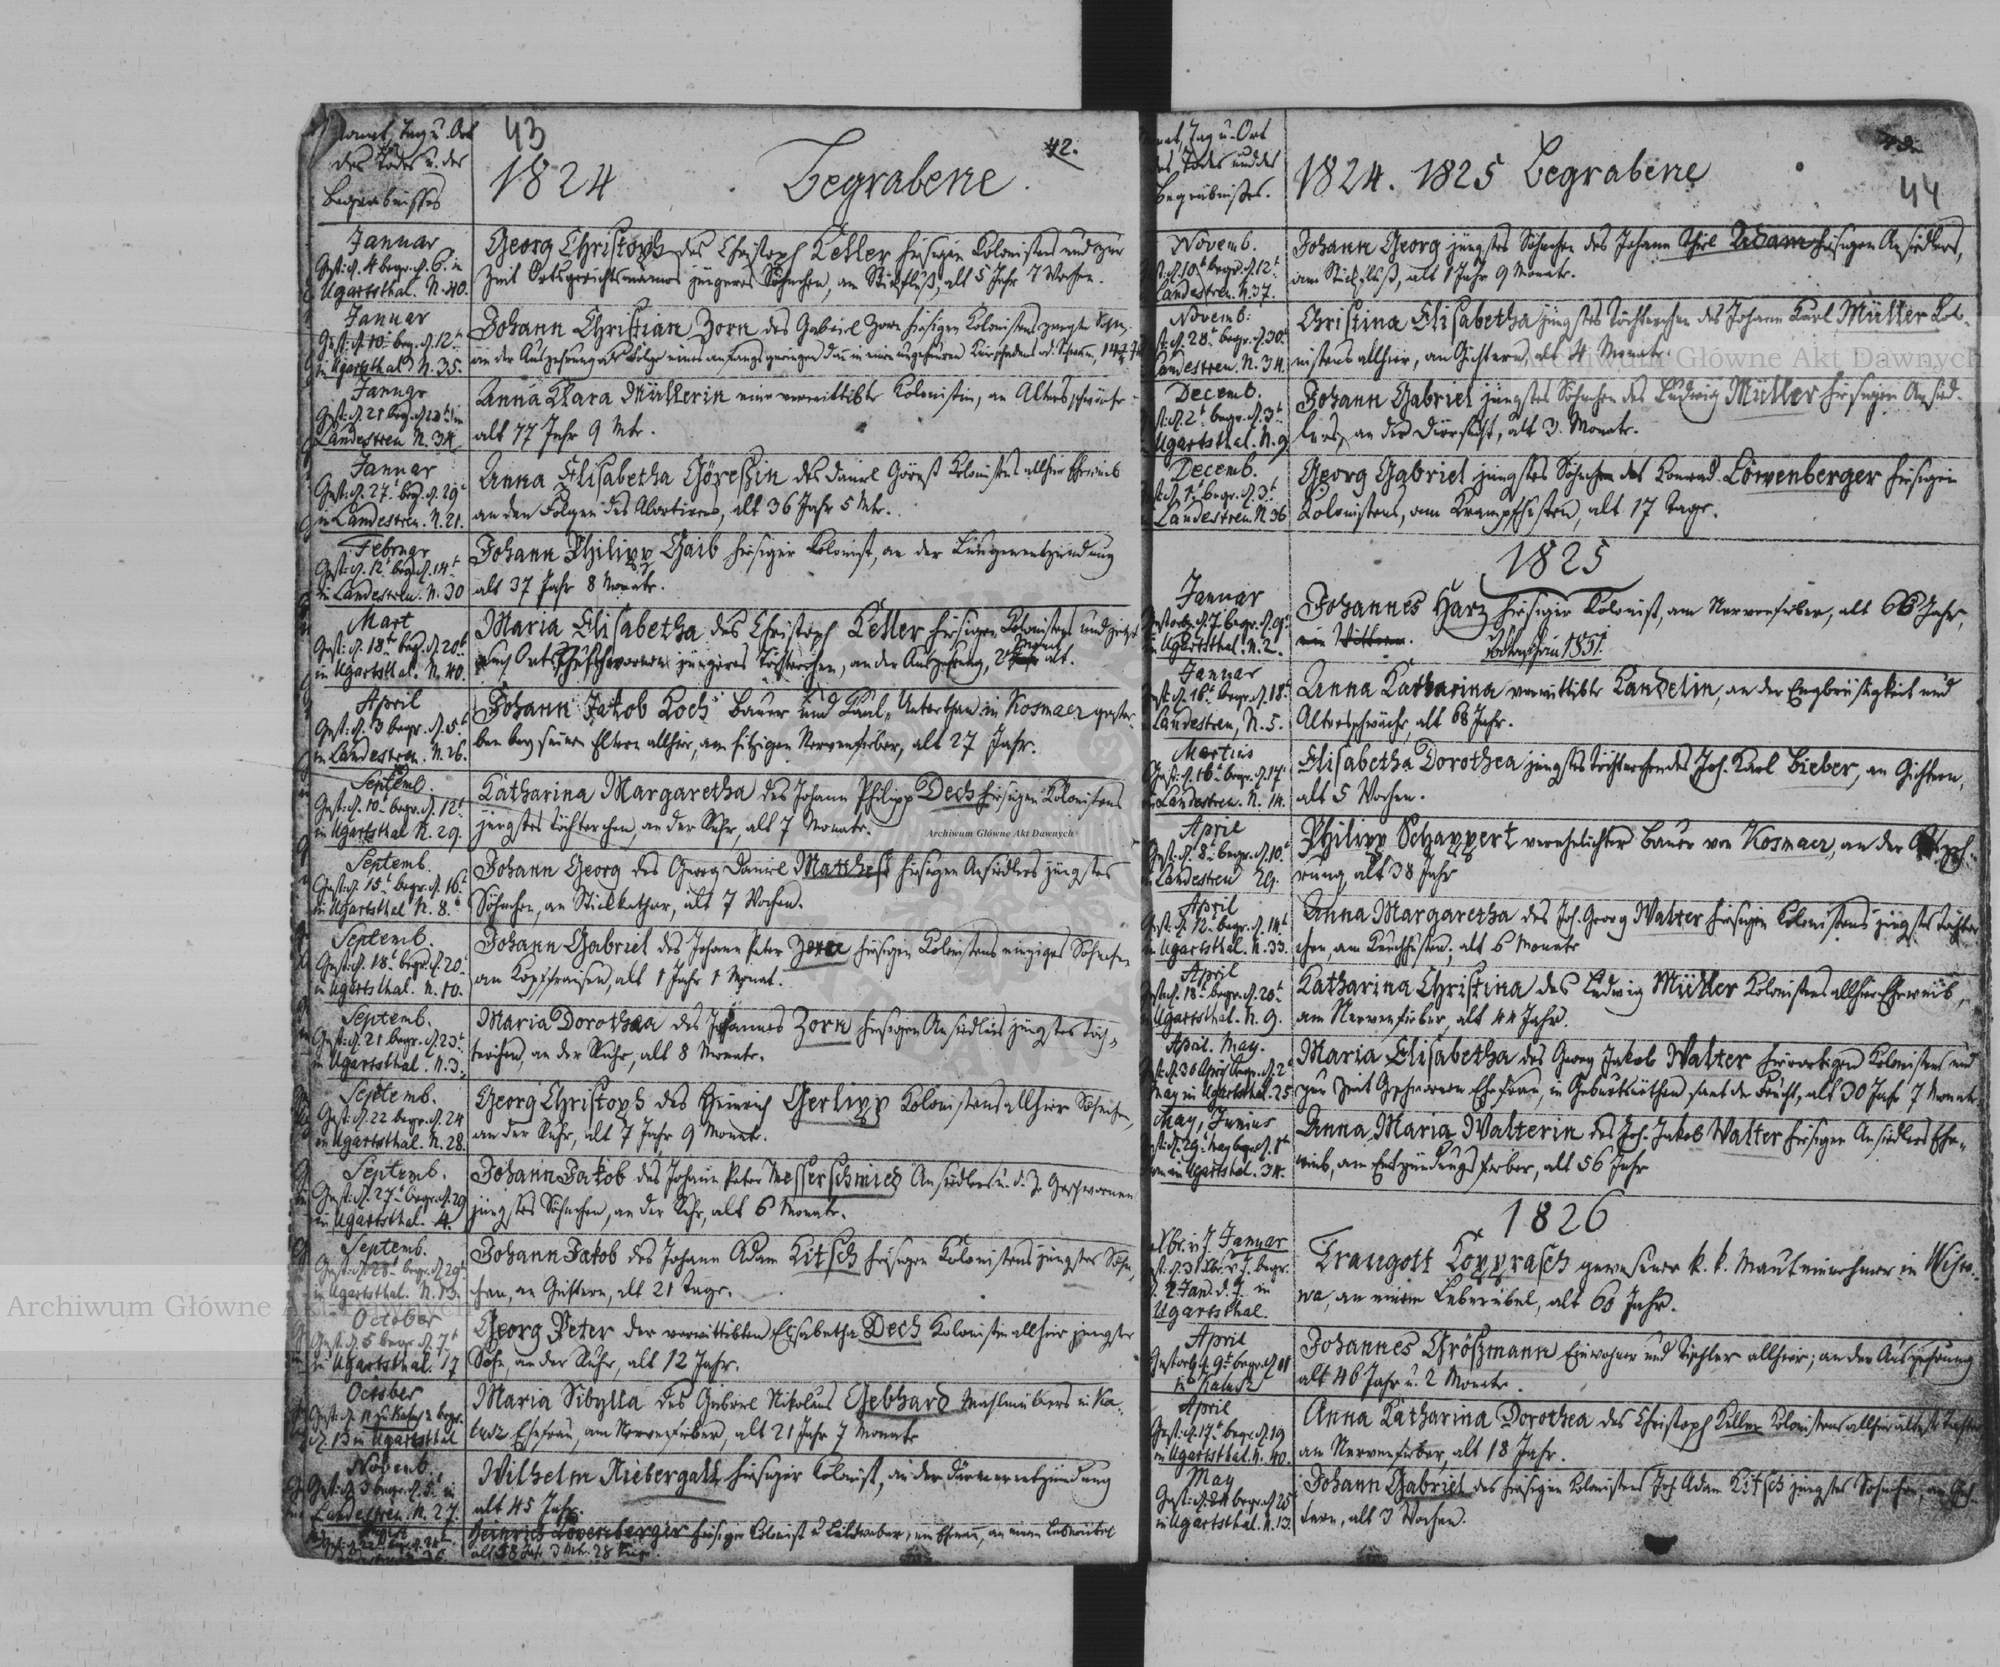 Monat, Tag u. Ort
des Todes u. des
Begräbnisses
43
1824 Begrabene.
42.
Januar
Gest. d. 4 begr. d. 6. in
Ugartsthal. N. 40.
Georg Christoph des Christoph Keller hiesigen Kolonistens und zur
Zeit Ortsgerichtsmannes jüngeres Söhnchen, am Stickfluß, alt 5 Jahr 7 Wochen.
Januar
Gest. d. 10t begr. d. 12t
in Ugartsthal N. 35.
Johann Christian Zorn des Gabriel Zorn hiesigen Kolonistens jüngster Sohn,
an der Auszehrung als Folge eines anfangs geringen
Januar
Gest. d. 21 begr. d. 23t in
Landestreu N. 34.
Anna Klara Müllerin eine verwittibte Kolonistin, an Altersschwäche
alt 77 Jahr 9 Mte.
Januar
Gest. d. 27t begr. d. 29t
in Landestreu. N. 21.
Anna Elisabetha des Daniel Kolonistens allhier Eheweib
an den Folgen des Abortirens, alt 36 Jahr 5 Mte.
Februar
Gest. d. 12t begr. d. 14t
in Landestreu. N. 30
Johann Philipp Gaib hiesiger Kolonist, an der Lungenentzündung
alt 37 Jahr 8 Monate.
Mart
Gest. d. 18t begr. d. 20t
in Ugartsthal. N. 40.
Maria Elisabetha des Christoph Keller hiesigen Kolonistens und
jüngeres Töchterchen, an der Auszehrung, alt.
April
Gest. d. 3 begr. d. 5t
in Landestreu. N. 26.
Johann Jakob Koch Bauer und Kaal-Unterthan in Kosmacz gestor-
ben bey seinen Eltern allhier, am hitzigen Nervenfieber, alt 27 Jahr.
Septemb.
Gest. d. 10t begr. d. 12t
in Ugartsthal N. 29.
Katharina Margaretha des Johann Philipp Dech hiesigen Kolonistens
jüngstes Töchterchen, an der Ruhr, alt 7 Monate.
Septemb.
Gest. d. 15t begr. d. 16t
in Ugartsthal N. 8.
Johann Georg des Georg Daniel Matthess hiesigen Ansiedlers jüngstes
Söhnchen, an Stickkathar, alt 7 Wochen.
Septemb.
Gest. d. 18t begr. d. 20t
in Ugartsthal. N. 10.
Johann Gabriel des Johann Peter Zorn hiesigen Kolonistens einziges Söhnchen
am Kopffraisen, alt 1 Jahr 1 Monat.
Septemb.
Gest. d. 21 begr. d. 23t
in Ugartsthal. N. 3.
Maria Dorothea des Johannes Zorn hiesigen Ansiedlers jüngstes Töch-
terchen, an der Ruhr, alt 8 Monate.
Septemb.
Gest. d. 22 begr. d. 24
in Ugartsthal. N. 28.
Georg Christoph des Heinrich Gerlipp Kolonistens allhier Söhnchen,
an der Ruhr, alt 7 Jahr 9 Monate.
Septemb.
Gest. d. 27t begr. d. 29
in Ugartsthal. 4.
Johann Jakob des Johann Peter Messerschmied Ansiedlers u. d. Z. Geschwornen
jüngstes Söhnchen, an der Ruhr, alt 6 Monate.
Septemb.
Gest. d. 28t begr. d. 29t
in Ugartsthal. N. 13.
Johann Jakob des Johann Adam Kitsch hiesigen Kolonistens jüngstes Söhn-
chen, an Gichtern, alt 21 Tage.
October
Gest. d. 5 begr. d. 7t
in Ugartsthal. 17
Georg Peter der verwittibten Elisabetha Dech Kolonistin allhier jüngster
Sohn, an der Ruhr, alt 12 Jahr.
October
Gest. d. 11 zu Kalusz begr.
d. 13 in Ugartsthal
Maria Sibylla des Gabriel Nikolaus Gebhard Mahlmüllers in Ka-
lusz Ehefrau, am Nervenfieber, alt 21 Jahr 7 Monate
Novemb.
Gest. d. 3 begr. d. 5t in
Landestreu. N. 27.
Wilhelm Niebergall hiesiger Kolonist, an der Därmerentzündung
alt 45 Jahr.
Heinrich Löwenberger hiesiger Kolonist u. Leinweber, ein Ehemann, an einem Leberübel
alt 58 Jahr 3 Mte. 28 Tage.
Monat, Tag u. Ort
des Todes und des
Begräbnißes.
1824. 1825 Begrabene
44
Novemb.
Gest. d. 10t begr. d. 12t
Landestreu. N. 37.
Johann Georg jüngstes Söhnchen des Johann Thiel Adam hiesigen Ansiedlers,
am Stickfluß, alt 1 Jahr 9 Monate.
Novemb:
Gest. d. 28t begr. d. 30t
Landestreu. N. 34.
Christina Elisabetha jüngstes Töchterchen des Johann Karl Müller Kolo-
nistens allhier, an Gichtern, alt 4 Monate.
Decemb.
Gest. d. 2t begr. d. 3t
Ugartsthal. N. 9
Johann Gabriel jüngstes Söhnchen des Ludwig Müller hiesigen Ansied-
lers, an der Dürrsucht, alt 3. Monate.
Decemb.
Gest. d. 1t begr. d. 3t
Landestreu N 36
Georg Gabriel jüngstes Söhnchen des Konrad Löwenberger hiesigen
Kolonistens, am Krampfhusten, alt 17 Tage.
1825
Januar
Gestorb. d. 7. begr. d. 9t
in Ugartsthal. N. 2.
Johannes Harz hiesiger Kolonist, am Nervenfieber, alt 66 Jahr,
ein Wittwer. Todtenschein 1851.
Januar
Gest. d. 16t begr. d. 18t
Landestreu, N. 5.
Anna Katharina verwittibte Kandelin, an der Engbrüstigkeit und
Altersschwäche, alt 68 Jahr.
Martius
Gest. d. 16t begr. d. 17t
in Landestreu. N. 14.
Elisabetha Dorothea jüngstes Töchterchen des Joh. Karl Bieber, an Gichtern,
alt 5 Wochen.
April
Gest. d. 8t begr. d. 10t
in Landestreu 29.
Philipp Schappert verehelichter Bauer von Kosmacz, an der Auszeh-
rung, alt 38 Jahr
April
Gest. d. 12t begr. d. 14t
in Ugartsthal. N. 33.
Anna Margaretha des Joh. Georg Walter hiesigen Kolonistens jüngstes Töchter-
chen, am Keuchhusten, alt 6 Monate
April
Gest. d. 18t begr. d. 20t
Ugartsthal. N. 9.
Katharina Christina des Ludwig Müller Kolonistens allhier Eheweib,
am Nervenfieber, alt 44 Jahr.
April. May.
Gest. d. 30 April begr. d. 2t
May in Ugartsthal. 25
Maria Elisabetha des Georg Jakob Walter hierortigen Kolonistens und
zur Zeit Geschwornen Ehefrau, in Geburtsnöthen samt der Frucht, alt 30 Jahr 7 Monate
May, Junius
Gest. d. 29. May begr. d. 1t
Jun. in Ugartsthal. 34.
Anna Maria Walterin des Joh. Jakob Walter hiesigen Ansiedlers Ehe-
weib, am Entzündungsfieber, alt 56 Jahr
1826
Januar
begr.
d. 2 Jan. d. J. in
Ugartsthal.
Traugott Kopprasch gewesener k. k. Mauteinnehmer in Wisto-
wa, an einem Leberübel, alt 60 Jahr.
April
Gestorb. d. 9t begr. d. 11
in Kalusz
Johannes Größmann Einwohner und Tischler allhier; an der Auszehrung
alt 46 Jahr u. 2 Monate.
April
Gest. d. 17t begr. d. 19
in Ugartsthal. N. 40.
Anna Katharina Dorothea des Christoph Keller Kolonistens allhier älteste Tochter
am Nervenfieber, alt 18 Jahr.
May
Gest. d. 24 begr. d. 25
in Ugartsthal. N. 13.
Johann Gabriel des hiesigen Kolonistens Joh. Adam Kitsch jüngstes Söhnchen, an Gich-
tern, alt 3 Wochen.
Archiwum Główne Akt Dawnych
Archiwum Główne Akt Dawnych
Archiwum Główne Akt Dawnych